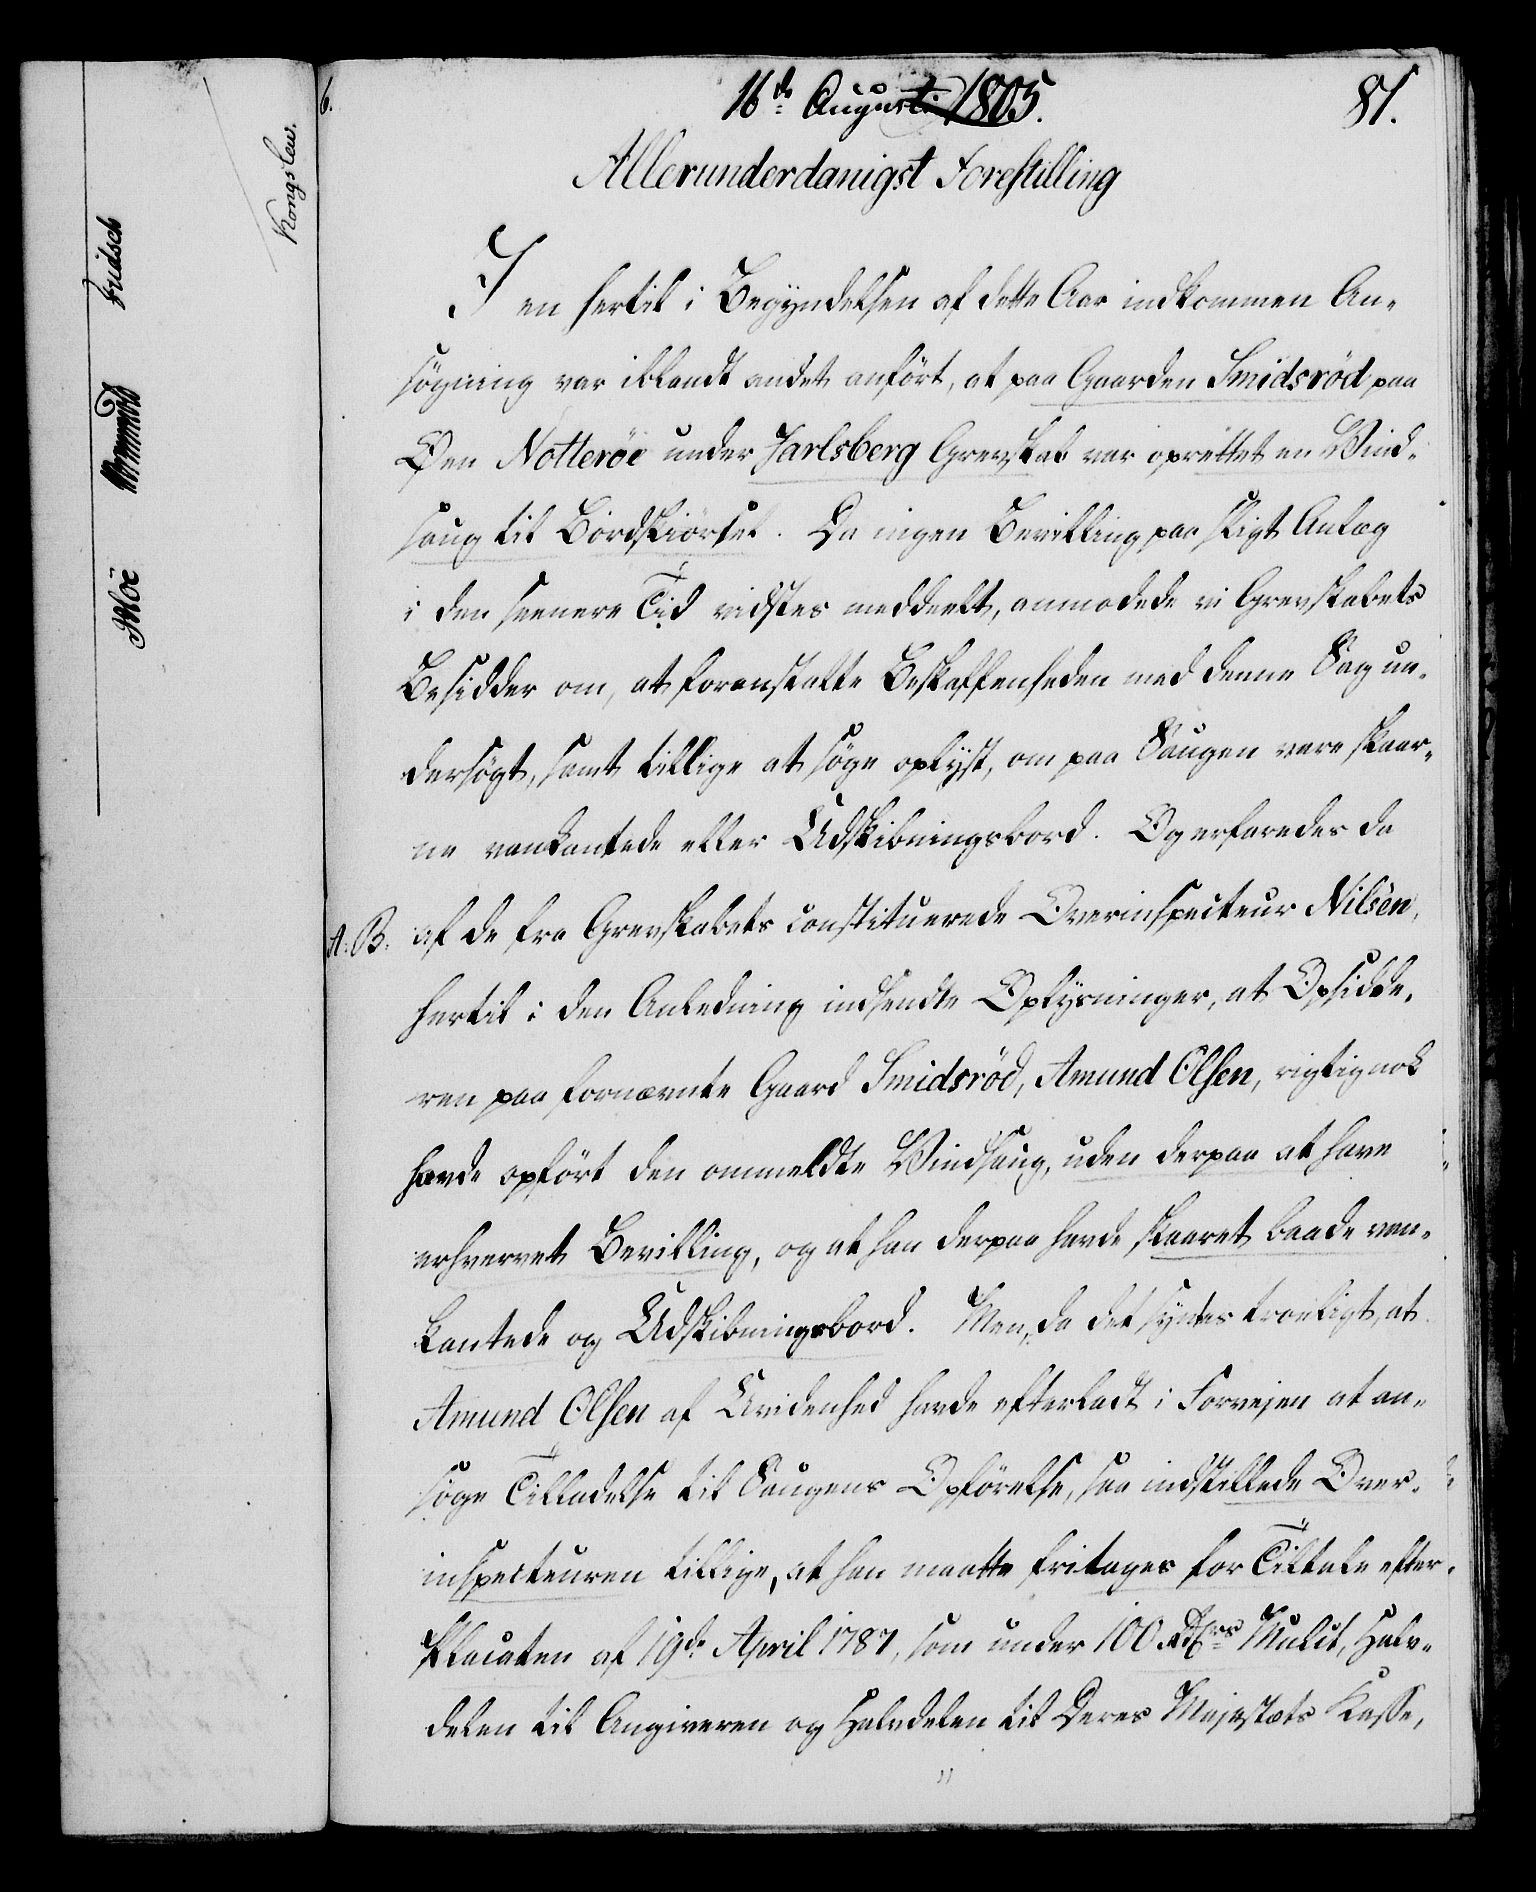 6.
16de Augusti 1805.
81.
Allerunderdanigst Forestilling
Kongslew.
Fridsch
Moe
I en hertil i Begyndelsen af dette Aar indkommen An-
søgning var iblandt andet anført, at paa Gaarden Smidsrød paa
Øen Notterøe under Jarlsberg Grevskab var oprettet en Vind-
saug til Bordskiørsel. Da ingen Bevilling paa sligt Anlæg
i den seenere Tid vidstes meddeelt, anmodede vi Grevskabets
Besidder om, at foranstalte Beskaffenheden med denne Sag un-
dersøgt, samt tillige at søge oplyst, om paa Saugen vare skaar-
ne vankantede eller Udskibningsbord. Og erfaredes da
A. B. af de fra Grevskabets constituerede Overinspecteur Nilsen,
hertil i den Anledning indsendte Oplysninger, at Opsidde-
ren paa fornævnte Gaard Smidsrød, Amund Olsen, rigtignok
havde opført den ommeldte Vindsaug, uden derpaa at have
erhvervet Bevilling, og at han derpaa havde skaaret baade van-
kantede og Udskibningsbord. Men, da det syntes troeligt, at
Amund Olsen af Uvidenhed havde efterladt i Forvejen at an-
søge Tilladelse til Saugens Opførelse, saa indstillede Over-
inspecteuren tillige, at han maatte fritages for Tiltale efter
Placaten af 19de April 1787, som under 100 Rdlrs Mulct, Halv-
delen til Angiveren og Halvdelen til Deres Majestæts Kasse,